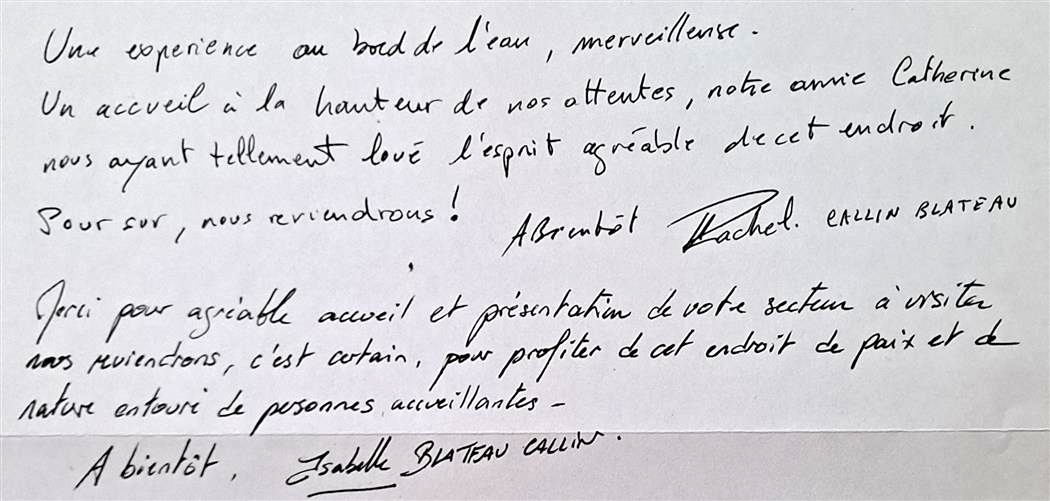 Une experience au bord de l'eau, merveilleuse.
Un accueil à la hauteur de nos attentes, notre amie Catherine
nous ayant tellement loué l'esprit agréable de cet endroit.
Pour sur, nous reviendrons !
A Bientôt Rachel. CALLIN BLATEAU
Merci pour agréable accueil et présentation de votre secteur à visiter
nous reviendrons, c'est certain, pour profiter de cet endroit de paix et de
nature entouré de personnes accueillantes -
A bientôt, Isabelle BLATEAU CALLIN.